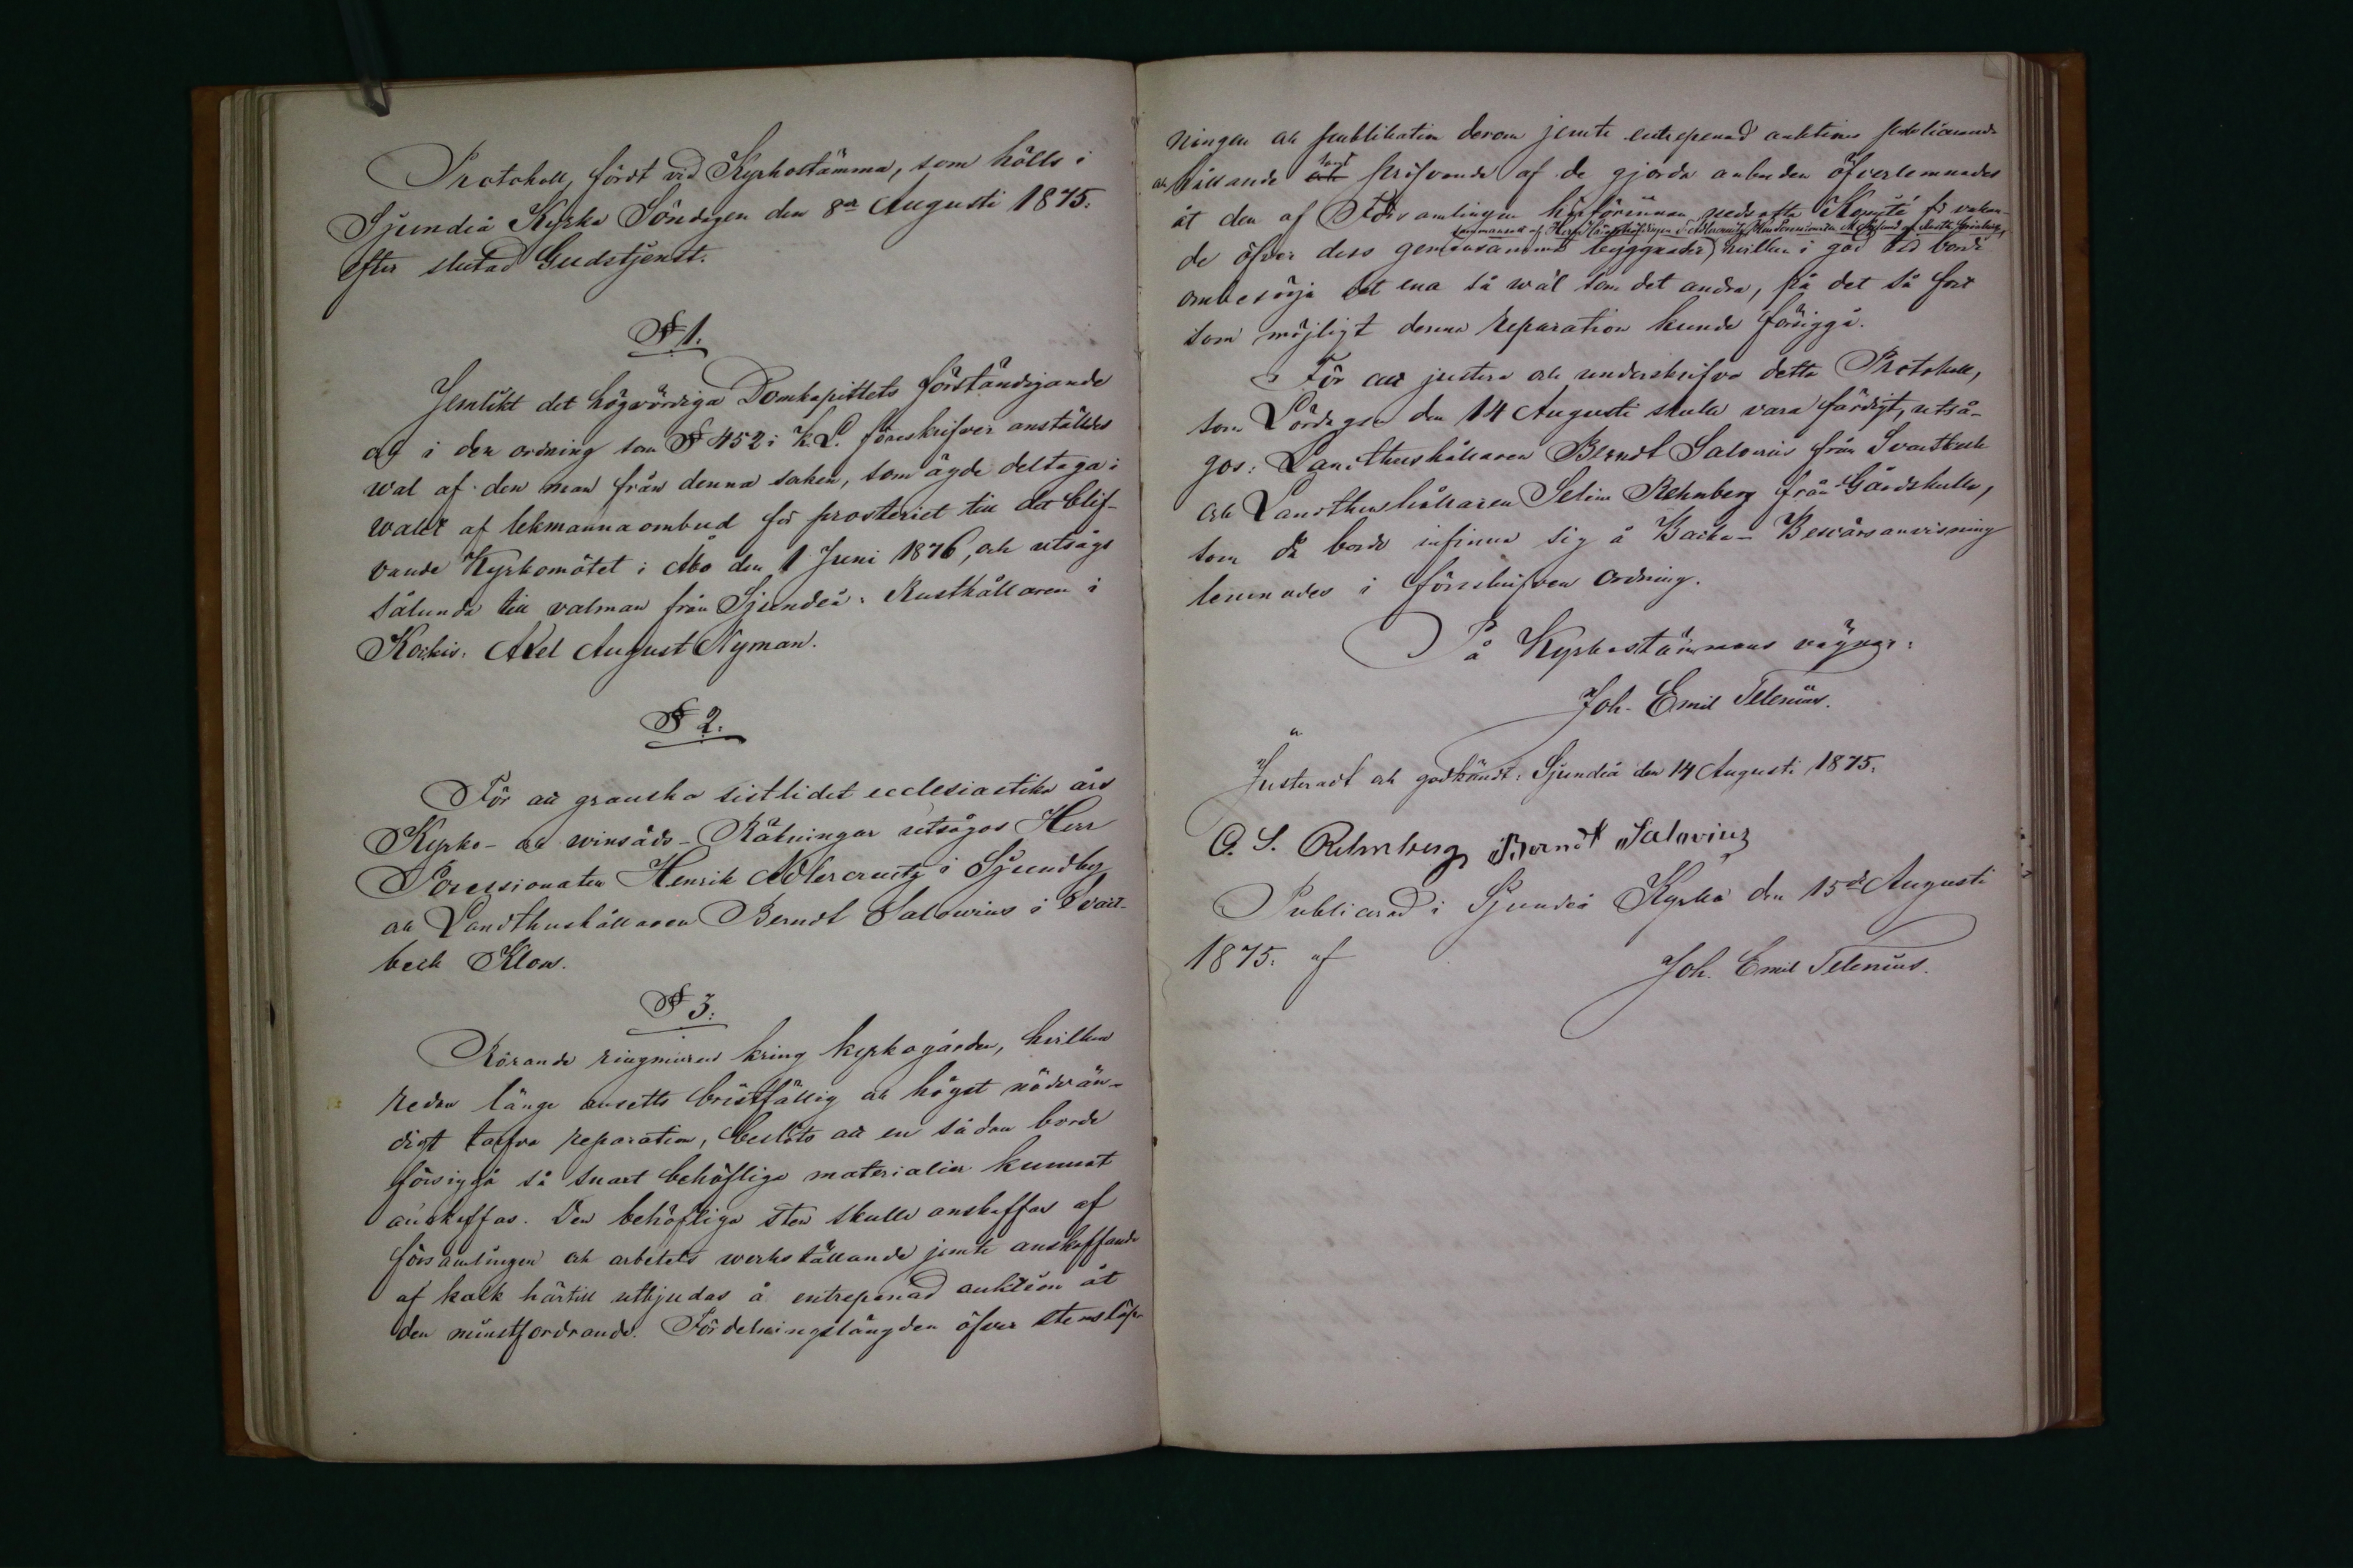 Protokoll, fördt vid Kyrkostämma, som hölls i
Sjundeå Kyrka Söndagen den 8de Augusti 1875.
efter slutad Gudstjenst.
§ 1.
Jemlikt det högvördiga Domkapitlets förständigande
och i den ordning som § 452 i K. L. föreskrifver anställdes
wal af den man från denna socken, som ägde deltaga i
walet af lekmannaombud för prosteriet till det blif-
vande Kyrkomötet i Åbo den 1 Juni 1876, och utsågs
sålunda till valman från Sjundeå: Rusthållaren i
Kockis: Axel August Nyman.
§ 2.
För att granska sistlidet ecclesiastika års
Kyrko- och winsäds-Räkningar utsågos Herr
Possessionaten Henrik Adlercreutz i Sjundby
och Landthushållaren Berndt Salovius i Svart-
beck Klows.
§ 3.
Rörande ringmuren kring kyrkogården, hvilken
redan länge ansetts bristfällig och högst nödvän-
digt tarfva reparation, beslöts att en sådan borde
försiggå så snart behöfliga materialier kunnat
anskaffas. Den behöfliga sten skulle anskaffas af
församlingen och arbetets werkställande jemte anskaffande
af kalk härtill utbjudas å entrepenad auktion åt
den minstfordrande. Fördelningslängden öfver stenslöp-
ningen och publikation derom jemte entrepenad auktions publicerande
och hållande samt pröfvande af de gjorda anbuden öfverlemnades
åt den af Församlingen härförinnan nedsatta Komité för vakan-
de öfver dess gemensamma byggnader hvilken i god tid borde
ombesörja det ena så wäl som det andra, på det så fort
som möjligt denna reparation kunde försiggå.
För att justera och underskrifva detta Protokoll,
som Lördagen den 14 Augusti skulle vara färdigt, utså-
gos: Landthushållaren Berndt Salovius från Svartbeck
och Landthushållaren Selim Rehnberg från Gårdskulla,
som då borde infinna sig å Backa. Besvärsanvisning
lemnades i föreskrifven ordning.
På Kyrkostämmans vägnar:
Joh. Emil Telenius.
Justeradt och godkändt: Sjundeå den 14 Augusti 1875.
C. S. Rehnberg Berndt Salovius
Publicerad i Sjundeå Kyrka den 15de Augusti
1875. af
Joh. Emil Telenius.